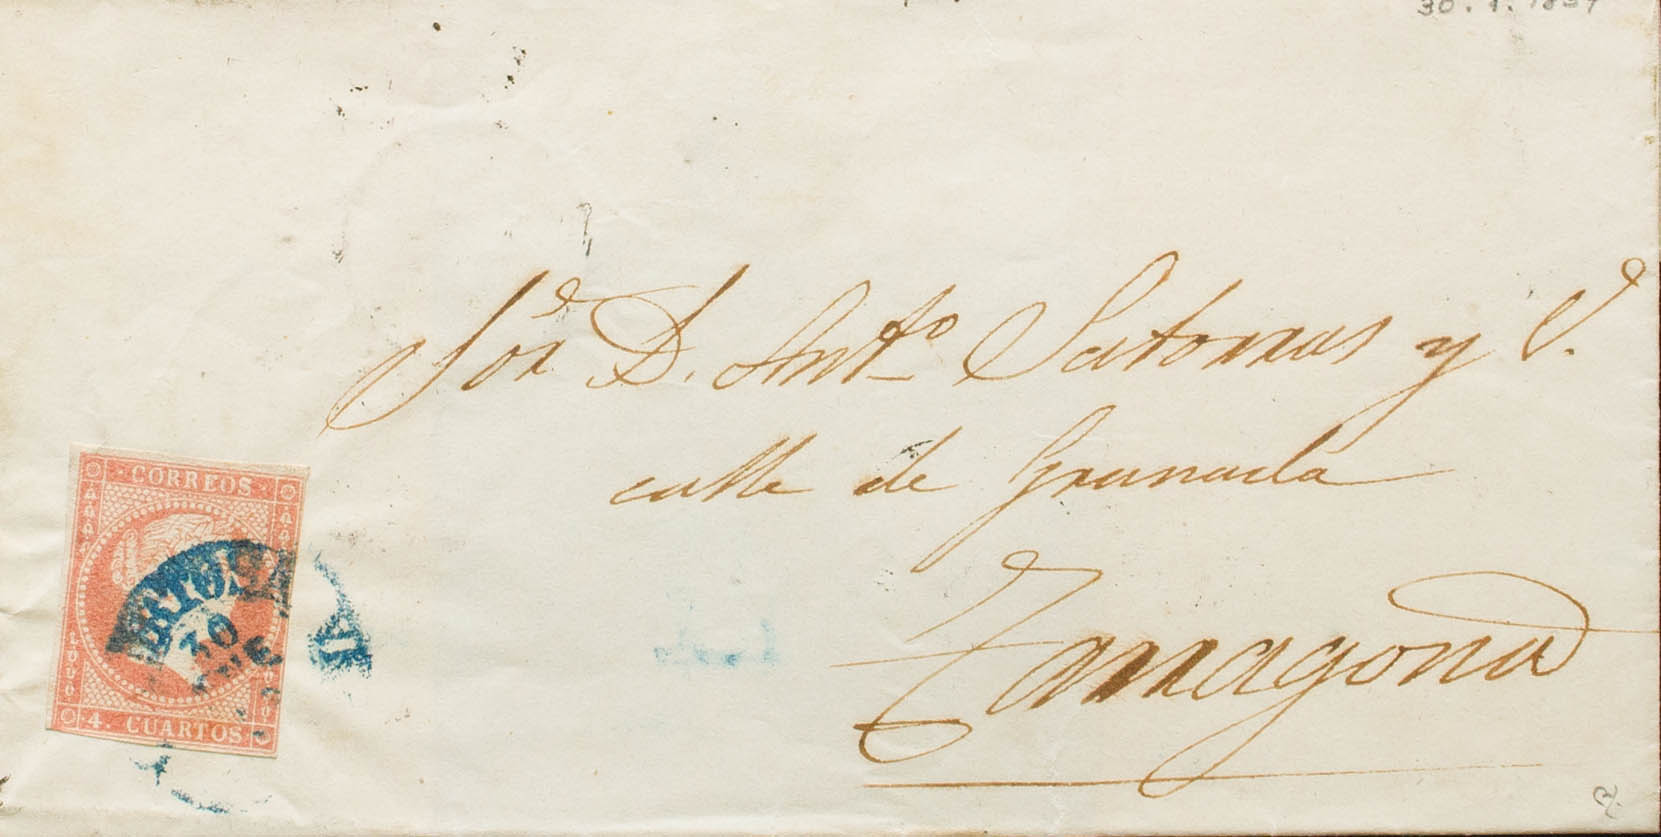 30.1.1857
Sor. D. Anto. Satorras y V.
calle de Granada
Tarragona
CORREOS
30
ENE
4. CUARTOS